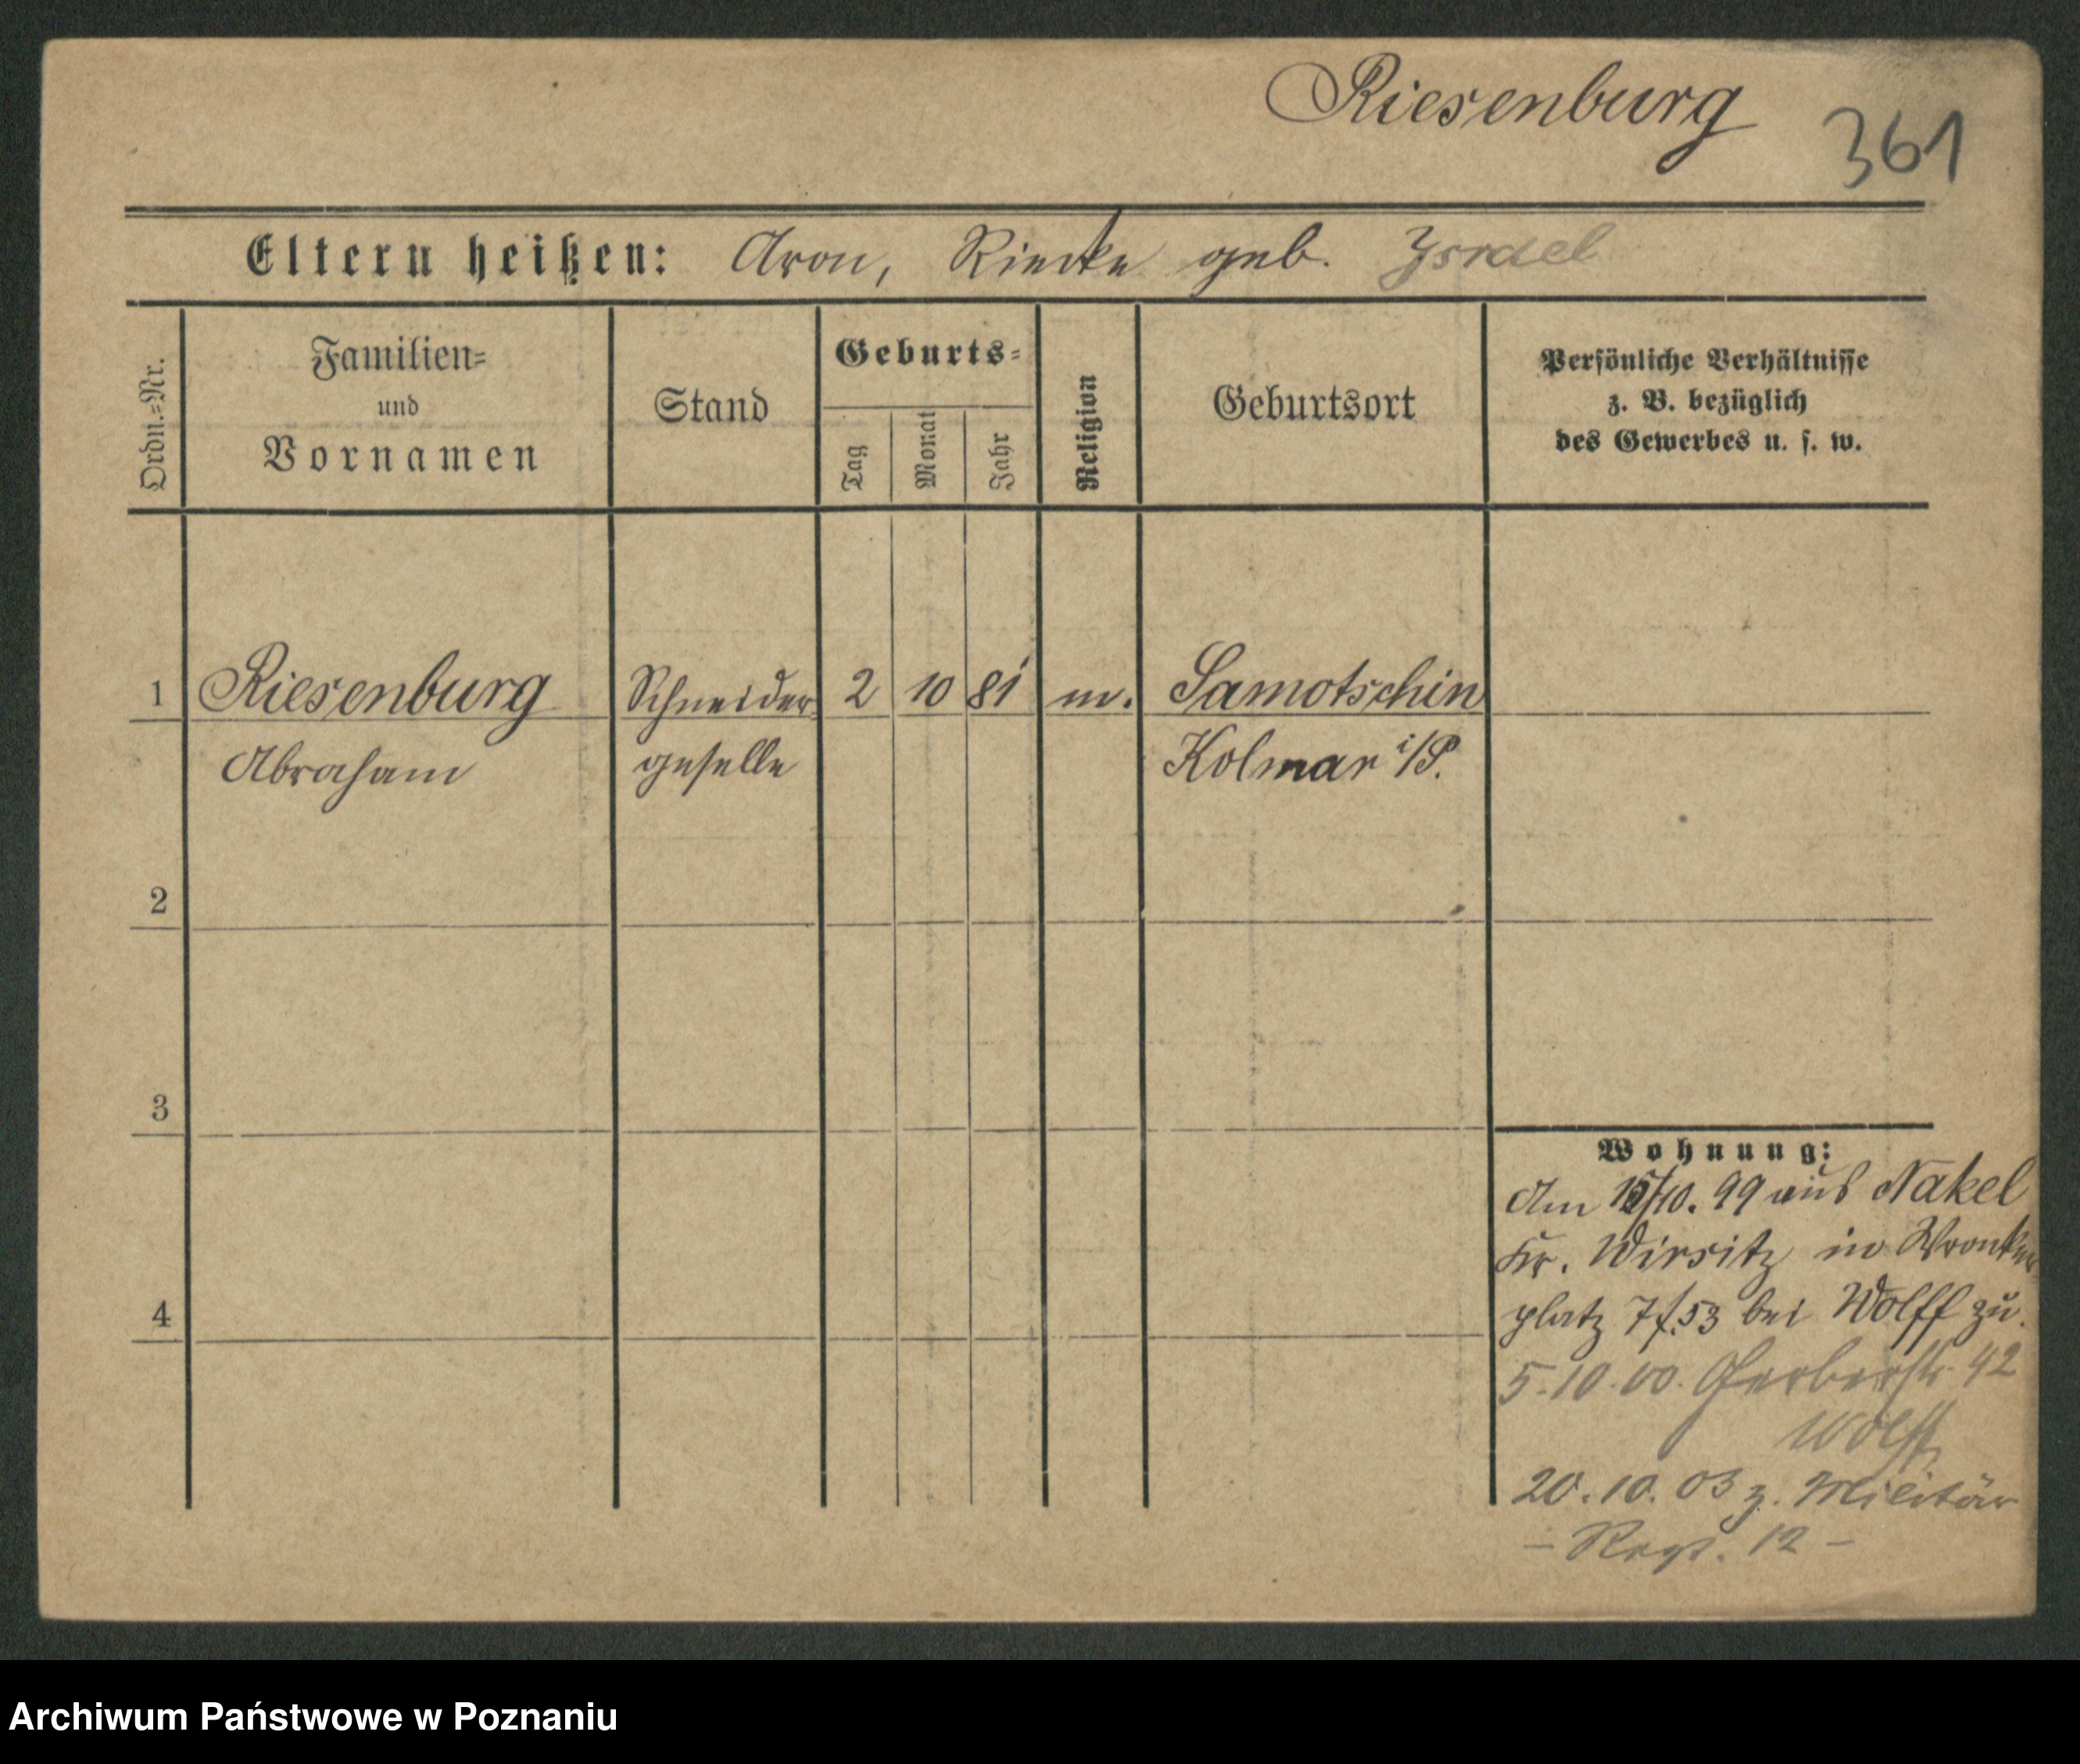 Riesenburg
361
Eltern heißen: Aron, Rieoke geb. Israel
Ordn.=Nr.
Familien=
und
Vornamen
Stand
Geburts=
Tag
Monat
Jahr
Religion
Geburtsort
Persönliche Verhältnisse
z. B. bezüglich
des Gewerbes u. s. w.
1 Riesenburg Schneider 2 10 81 m. Samotschin
Abraham geselle Kolmar i/P.
2
3
4
Wohnung:
Am 15/10. 99 aus Nakel
Kr. Wirsitz in Wronker
platz 7 53 bei Wolff zu.
5.10.00. Gerberstr. 42
Wolff
20.10.03 z. Militär
– Regt. 12 –
Archiwum Państwowe w Poznaniu